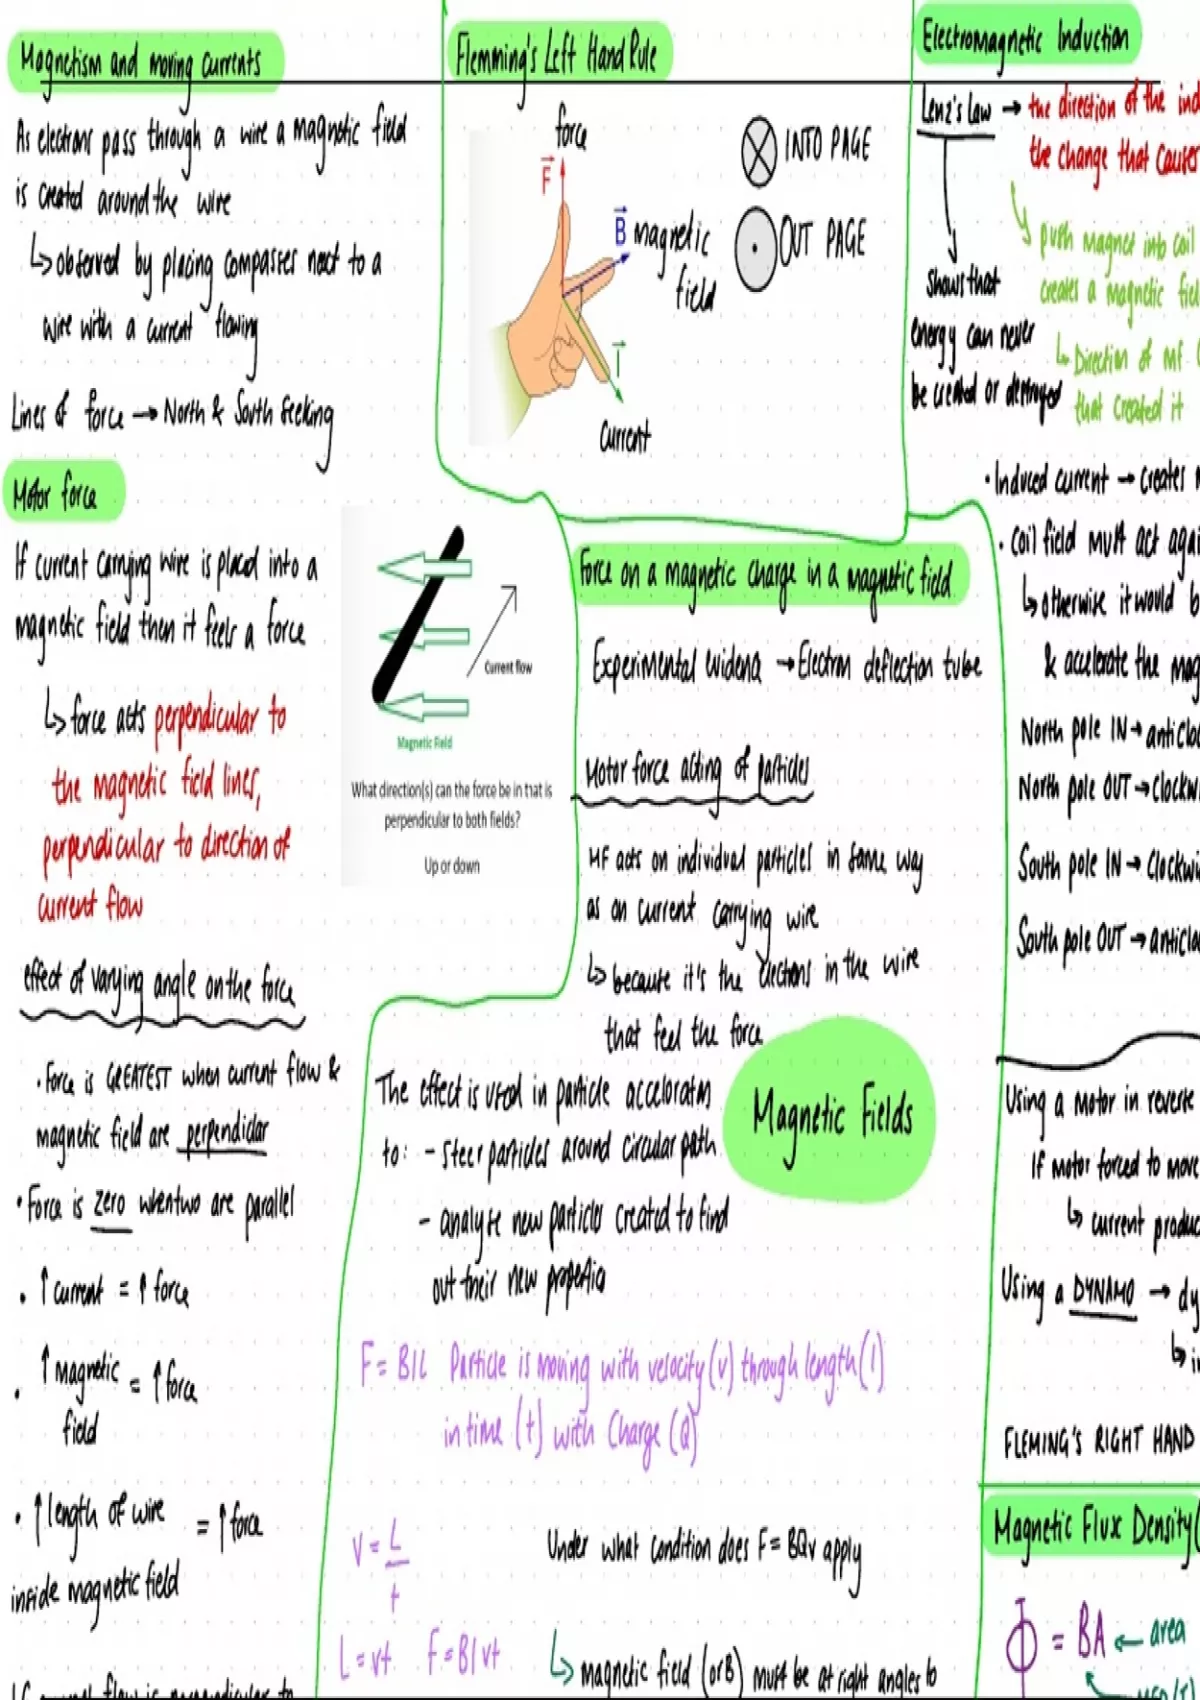 Magnetism and moving currents
As electrons pass through a wire a magnetic field
is created around the wire
↳ observed by placing compasses next to a
wire with a current flowing
Lines of force → North & South Seeking
Motor force
If current carrying wire is placed into a
magnetic field then it feels a force
↳ force acts perpendicular to
the magnetic field lines,
perpendicular to direction of
current flow
effect of varying angle on the force
• Force is GREATEST when current flow &
magnetic field are perpendicular
• Force is zero when two are parallel
• ↑ current = ↑ force
• ↑ magnetic field = ↑ force
• ↑ length of wire = ↑ force
inside magnetic field
Flemming's Left Hand Rule
force
F
B magnetic
field
I
Current
INTO PAGE
OUT PAGE
Current flow
Magnetic Field
What direction(s) can the force be in that is
perpendicular to both fields?
Up or down
Force on a magnetic charge in a magnetic field
Experimental → Electron deflection tube
Motor force acting of particles
MF acts on individual particles in same way
as on current carrying wire
↳ because it's the electrons in the wire
that feel the force
Magnetic Fields
The effect is used in particle
to: - Steer particles around circular path
- analyse new particles created to find
out their new
F = BIL Particle is moving with velocity (v) through length (l)
in time (t) with Charge (Q)
V = L
t
L = vt F = BIvt
Under what condition does F = BQv apply
↳ magnetic field (or B) must be at right angles to
Electromagnetic Induction
Lenz's Law → the direction of the ind
the change that causes
push magnet into coil
creates a magnetic fiel
↳ Direction of mf
that created it
shows that
energy can never
be created or destroyed
• Induced current → creates
• Coil field must act agai
↳ otherwise it would b
& accelerate the mag
North pole IN → anticloc
North pole OUT → clockwi
South pole IN → clockwi
South pole OUT → anticloc
Using a motor in reverse
If motor forced to move
↳ current produc
Using a DYNAMO → dy
↳ i
FLEMING'S RIGHT HAND
Magnetic Flux Density (
Φ = BA ← area